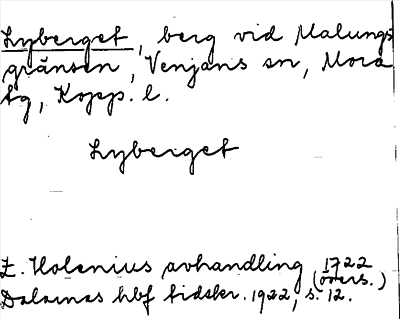 Lyberget, berg vid Malungs
gränsen, Venjans sn, Mora
tg, Kopp. l.
Lyberget
E. Holenius avhandling 1722
(övers.)
Dalarnas hbf tidskr. 1922, s. 12.